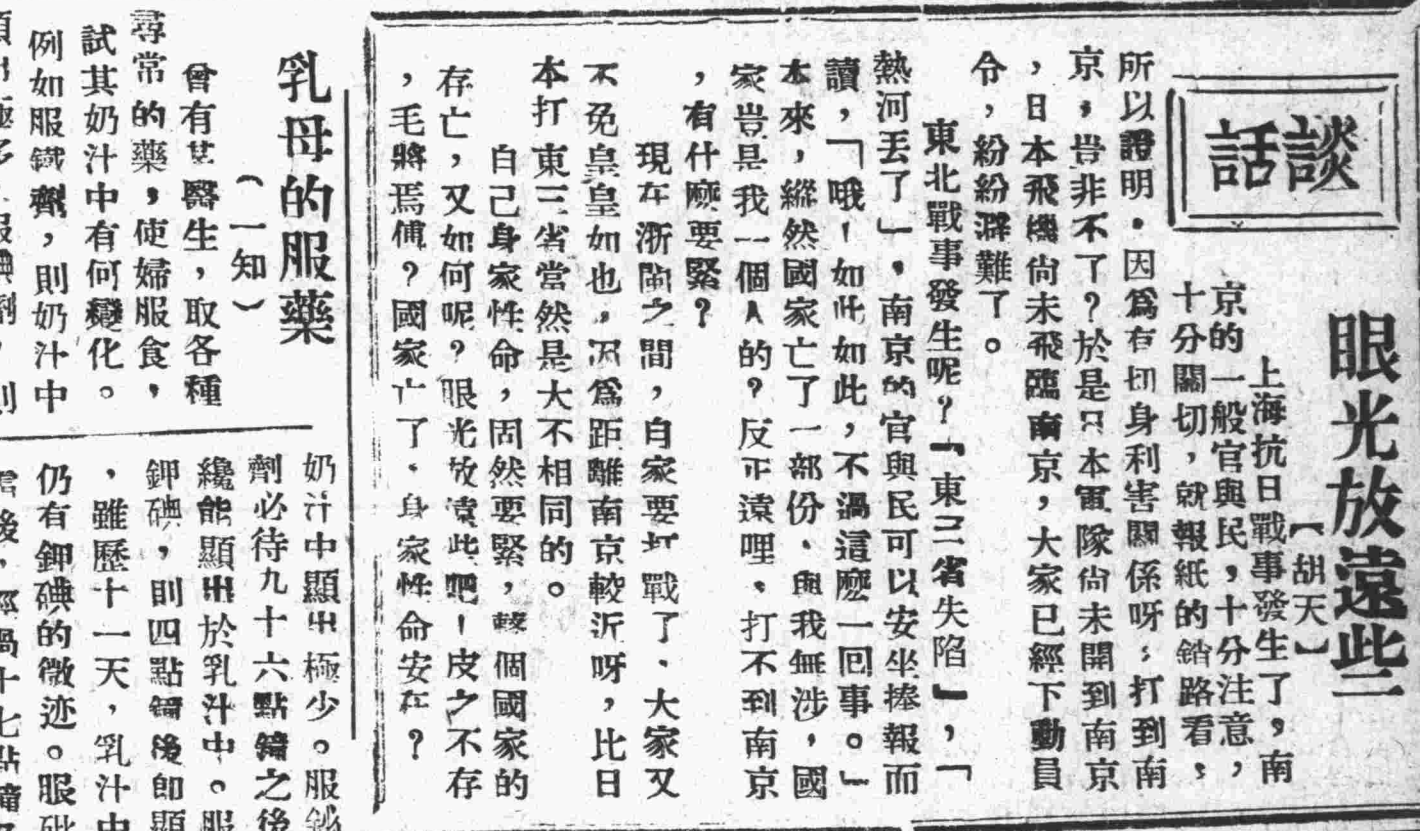 談話
眼光放遠些
【胡天】
上海抗日戰事發生了，南
京的一般官與民，十分注意，
十分關切，就報紙的銷路看，
所以證明。因爲有切身利害關係呀，打到南
京，豈非不了？於是日本軍隊尙未開到南京
，日本飛機尙未飛臨南京，大家已經下動員
令，紛紛避難了。
東北戰事發生呢？「東三省失陷」，「
熱河丟了」，南京的官與民可以安坐捧報而
讀，「哦！如此如此，不過這麽一回事。」
本來，縱然國家亡了一部份，與我無涉，國
家豈是我一個人的？反正遠哩，打不到南京
，有什麽要緊？
現在浙閩之間，自家要打戰了，大家又
不免皇皇如也，因爲距離南京較近呀，比日
本打東三省當然是大不相同的。
自己身家性命，固然要緊，整個國家的
存亡，又如何呢？眼光放遠些吧！皮之不存
，毛將焉傅？國家亡了，身家性命安在？
乳母的服藥
（一知）
曾有某醫生，取各種
尋常的藥，使婦服食，
試其奶汁中有何變化。
例如服鐵劑，則奶汁中
奶汁中顯出極少。服鉍
劑必待九十六點鐘之後
纔能顯出於乳汁中。服
鉀碘，則四點鐘後卽顯
，雖歷十一天，乳汁中
仍有鉀碘的微迹。服砒